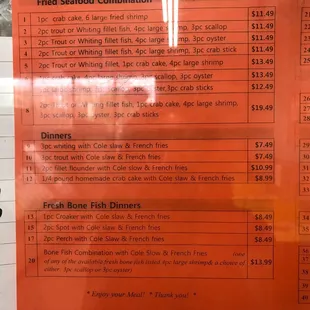 Fried Seafood Combination
1 1pc crab cake, 6 large fried shrimp $11.49
2 2pc trout or Whiting fillet fish, 4pc large shrimp, 3pc scallop $11.49
3 2pc Trout or Whiting fillet fish, 4pc large shrimp, 3pc oyster $11.49
4 2pc Trout or Whiting fillet fish, 4pc large shrimp, 3pc crab stick $11.49
5 2pc Trout or Whiting fillet, 1pc crab cake, 4pc large shrimp $13.49
1pc crab cake, 4pc large shrimp, 3pc scallop, 3pc oyster $13.49
$12.49
8 2pc Trout or Whiting fillet fish, 1pc crab cake, 4pc large shrimp, 3pc scallop, 3pc oyster, 3pc crab sticks $19.49
Dinners
9 3pc whiting with Cole slaw & French fries $7.49
10 1pc trout with Cole slaw & French fries $7.49
11 2pc fillet flounder with Cole slaw & French fries $10.99
12 1/4 pound homemade crab cake with Cole slaw & French fries $8.99
Fresh Bone Fish Dinners
13 1pc Croaker with Cole slaw & French fries $8.49
15 2pc Spot with Cole slaw & French fries $8.49
17 2pc Perch with Cole slaw & French fries $8.49
20 Bone Fish Combination with Cole Slaw & French Fries $13.99
of any of the available fresh bone fish listed 4pc large shrimp & a choice of
either: 3pc scallop or 3pc oyster
*Enjoy your Meal! *Thank you! *